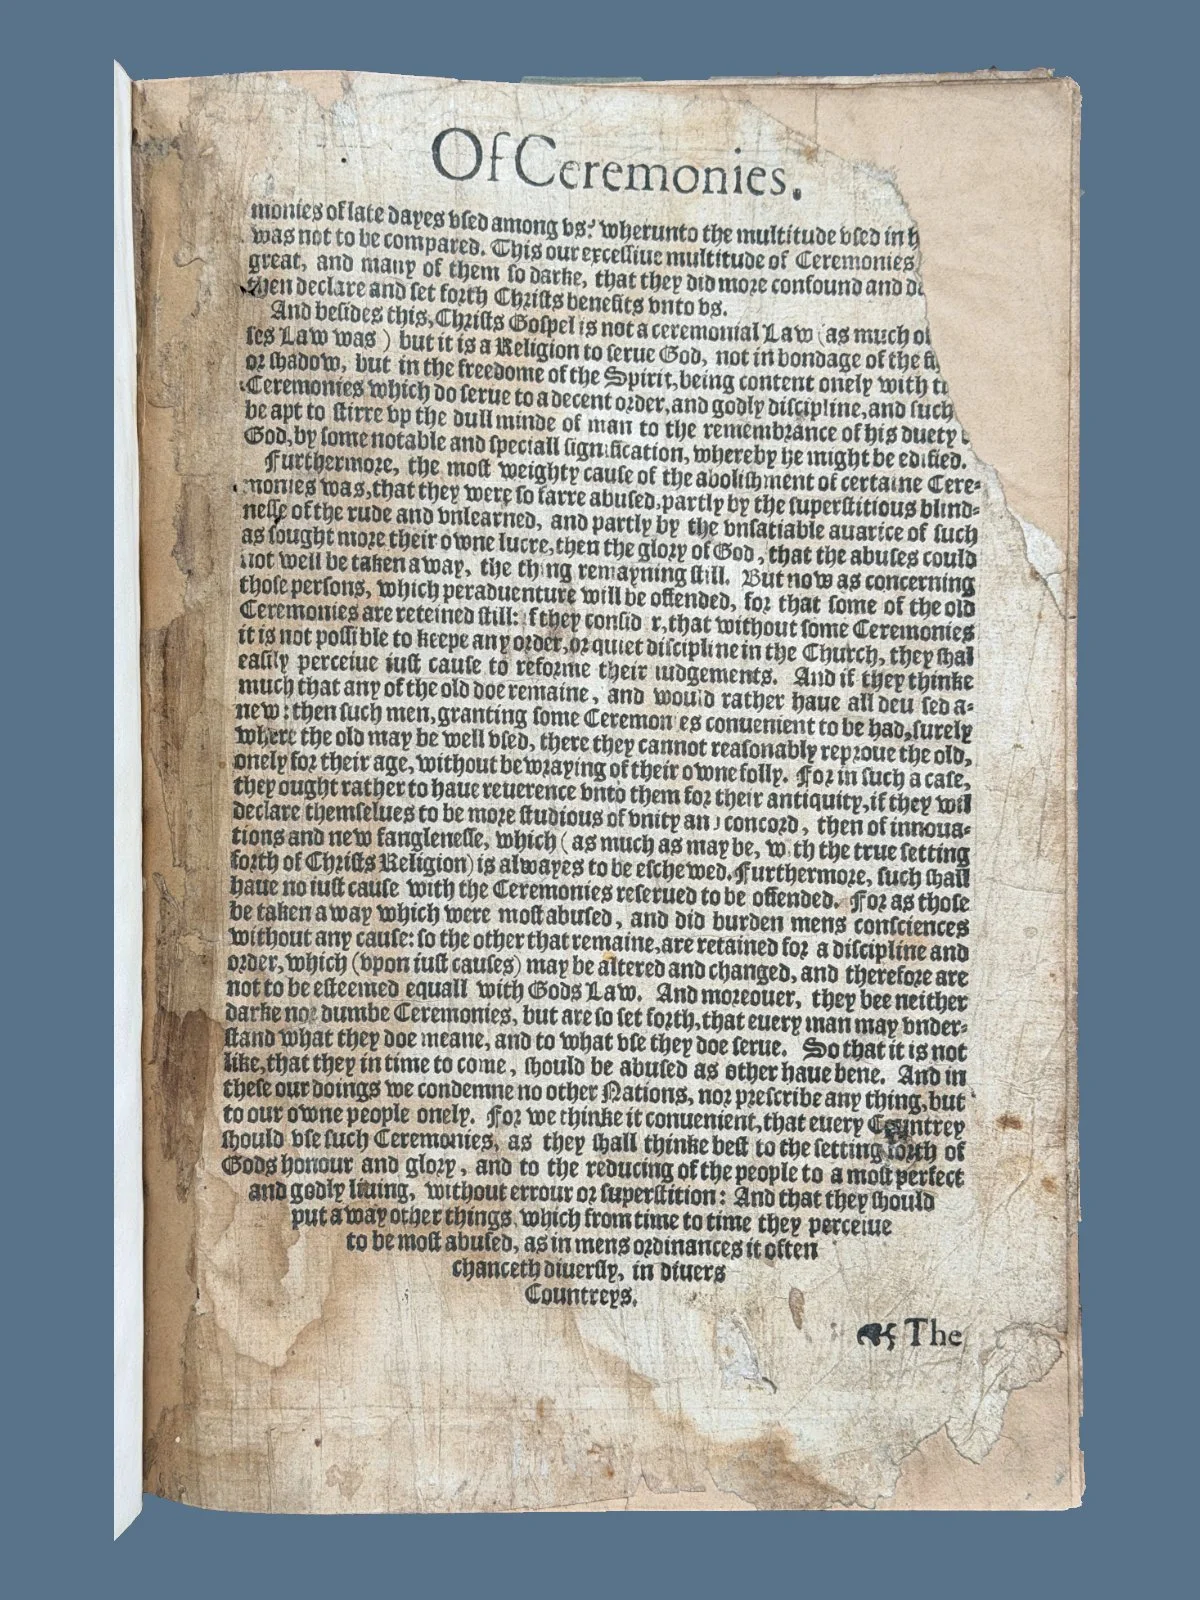 Of Ceremonies.
monies of late dayes vsed among vs? wherunto the multitude vsed in
was not to be compared. This our excessiue multitude of Ceremonies
great, and many of them so darke, that they did more confound and
then declare and set forth Christs benefits vnto vs.
And besides this, Christs Gospel is not a ceremonial Law (as much
ses Law was) but it is a Religion to serue God, not in bondage of the
or shadow, but in the freedome of the Spirit, being content onely with
Ceremonies which do serue to a decent order, and godly discipline, and such
be apt to stirre vp the dull minde of man to the remembrance of his duety
God, by some notable and speciall signification, whereby he might be edified.
Furthermore, the most weighty cause of the abolishment of certaine Cere-
monies was, that they were so farre abused, partly by the superstitious blind-
nesse of the rude and vnlearned, and partly by the vnsatiable auarice of such
as sought more their owne lucre, then the glory of God, that the abuses could
not well be taken away, the thing remayning still. But now as concerning
those persons, which peraduenture will be offended, for that some of the old
Ceremonies are reteined still: if they consider, that without some Ceremonies
it is not possible to keepe any order, or quiet discipline in the Church, they shal
easily perceiue iust cause to reforme their iudgements. And if they thinke
much that any of the old doe remaine, and would rather haue all deuised a-
new: then such men, granting some Ceremonies conuenient to be had, surely
where the old may be well vsed, there they cannot reasonably reproue the old,
onely for their age, without bewraying of their owne folly. For in such a case,
they ought rather to haue reuerence vnto them for their antiquity, if they will
declare themselues to be more studious of vnity and concord, then of innoua-
tions and new fanglenesse, which (as much as may be, with the true setting
forth of Christs Religion) is alwayes to be eschewed. Furthermore, such shall
haue no iust cause with the Ceremonies reserued to be offended. For as those
be taken away which were most abused, and did burden mens consciences
without any cause: so the other that remaine, are retained for a discipline and
order, which (vpon iust causes) may be altered and changed, and therefore are
not to be esteemed equall with Gods Law. And moreouer, they bee neither
darke nor dumbe Ceremonies, but are so set forth, that euery man may vnder-
stand what they doe meane, and to what vse they doe serue. So that it is not
like, that they in time to come, should be abused as other haue bene. And in
these our doings we condemne no other Nations, nor prescribe any thing, but
to our owne people onely. For we thinke it conuenient, that euery Countrey
should vse such Ceremonies, as they shall thinke best to the setting forth of
Gods honour and glory, and to the reducing of the people to a most perfect
and godly liuing, without errour or superstition: And that they should
put away other things, which from time to time they perceiue
to be most abused, as in mens ordinances it often
chanceth diuersly, in diuers
Countreys.
The